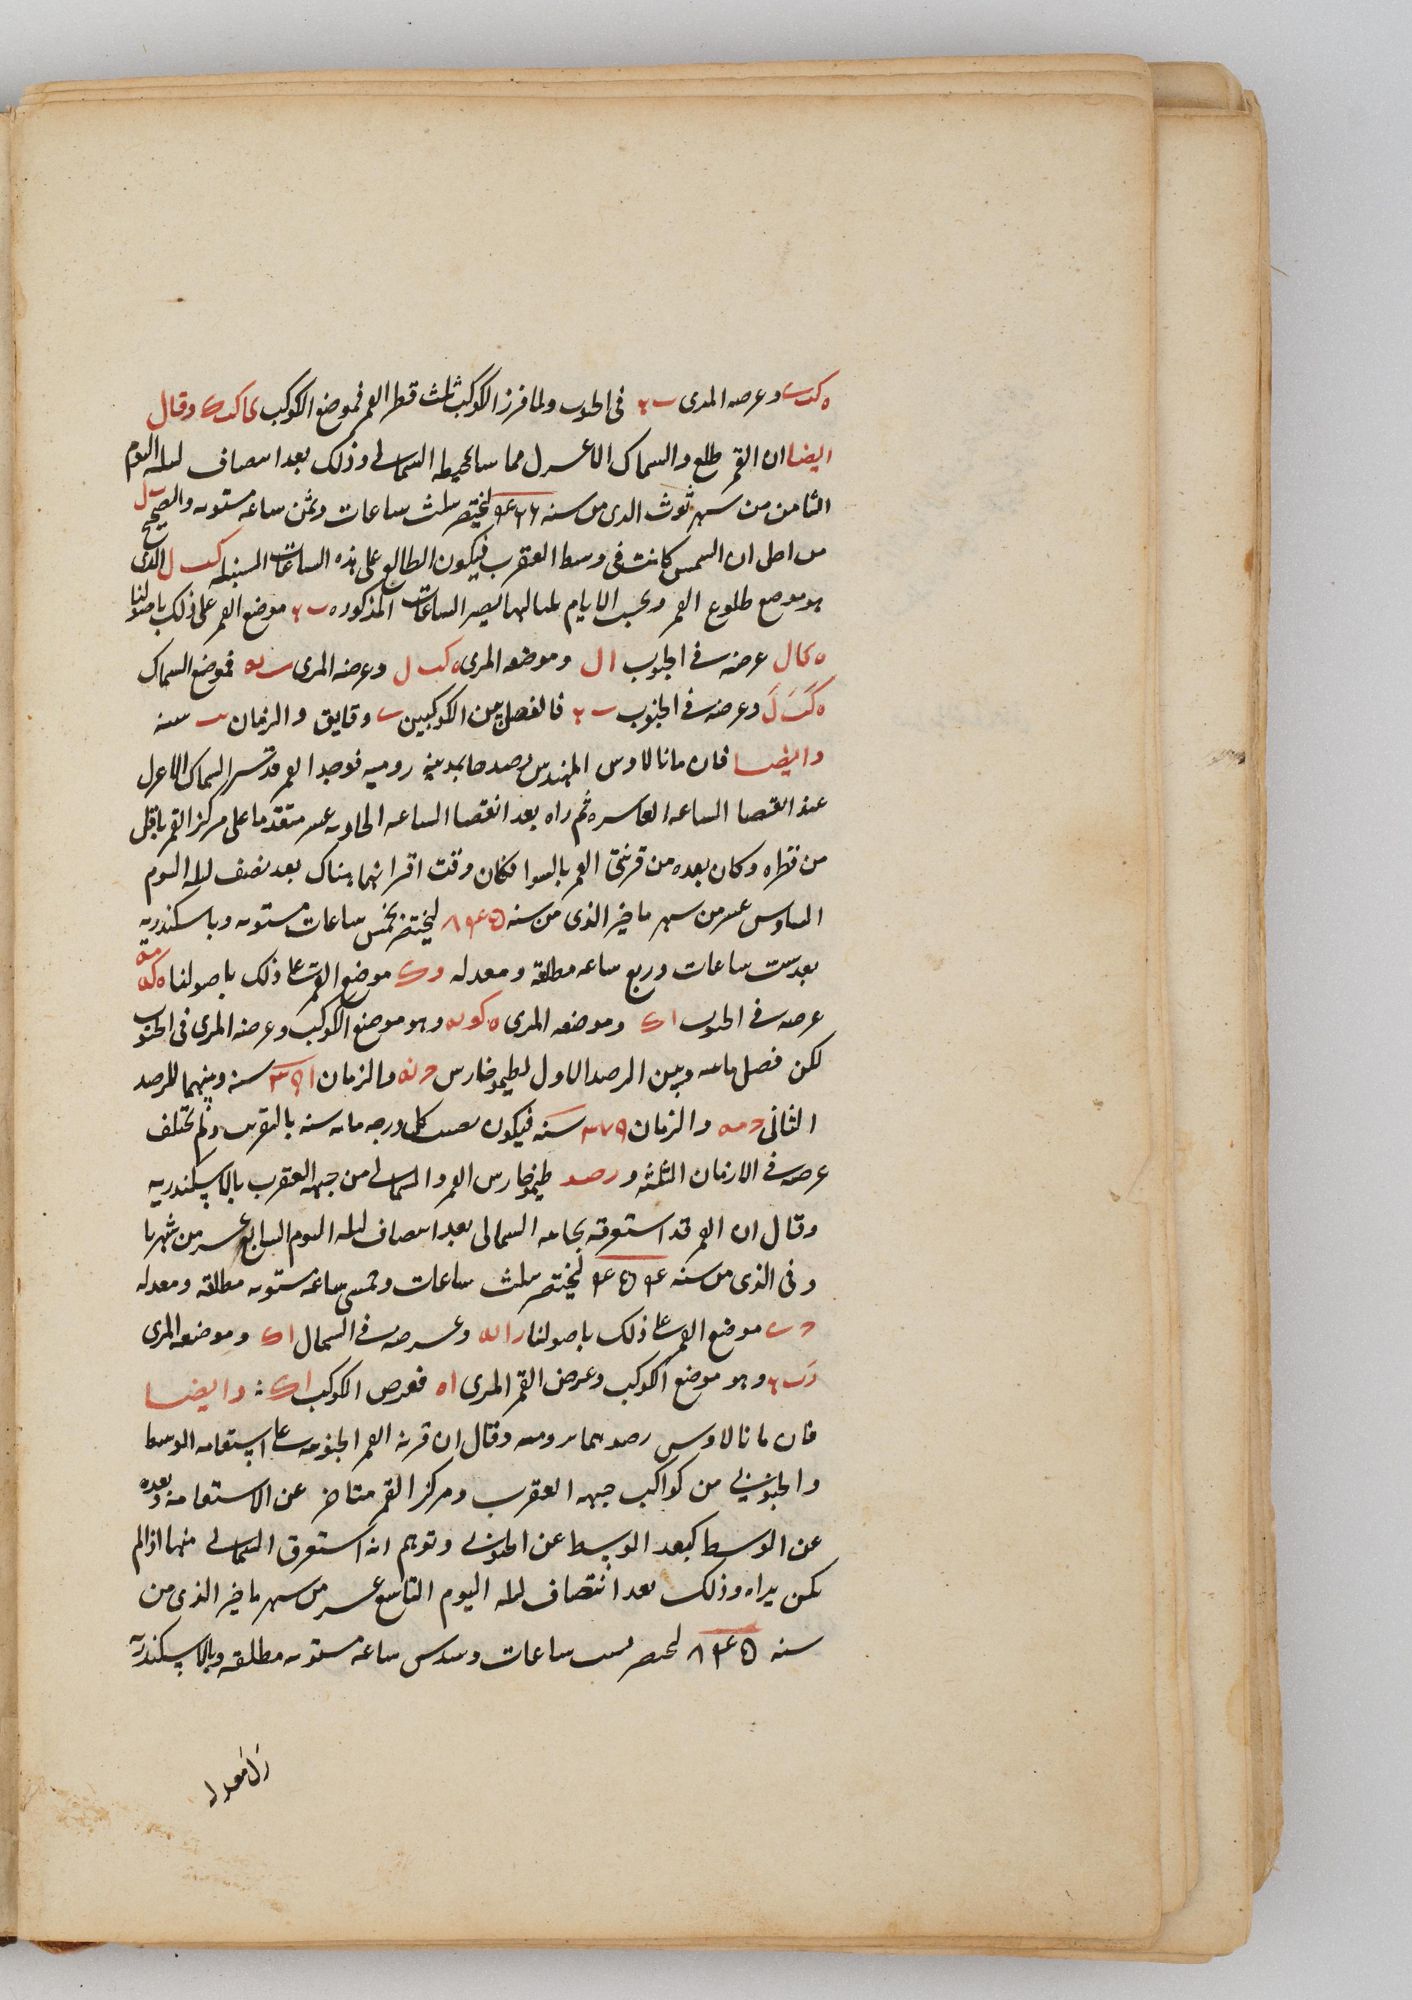 ه كدك وعرضه المرى ـ ٢ فى الجنوب ولما فرز الكوكب ثلث قطر القمر فموضع الكوكب كا كدك وقال
ايضا ان القمر طلع والسماك الاعزل مماسا لمحيطه الشمالى وذلك بعد انتصاف ليلة اليوم
الثامن من شهر ثوث الذى من سنه ٤٦٦ لبختنصر بثلث ساعات وثمن ساعة مستويه والصحيح ـ ل
من اجل ان الشمس كانت فى وسط العقرب فيكون الطالع على هذه الساعات السنبله كب ل الذى
هو موضع طلوع القمر وبحسب الايام بلياليها يصير الساعات المذكوره ـ ٢ موضع القمر على ذلك باصولنا
ه كا ل عرضه فى الجنوب ا ل وموضعه المرى ه كب ل وعرضه المرى ـ ـه فموضع السماك
ه كب ل وعرضه فى الجنوب ـ ٢ فالفصل بين الكوكبين ـ دقايق والزمان ـ سنه
وايضا فان مانالاوس المهندس رصدهما بمدينه روميه فوجد القمر قد ستر السماك الاعزل
عند انقضا الساعه العاشره ثم راه بعد انقضا الساعه الحاديه عشر متقدما على مركز القمر باقل
من قطره وكان بعده من قرنى القمر بالسوا فكان وقت اقترانهما هناك بعد نصف ليله اليوم
السادس عشر من شهر ماخير الذى من سنه ٨٤٥ لبختنصر بخمس ساعات مستويه وباسكندريه
بعد ست ساعات وربع ساعه مطلقة ومعدله وك موضع القمر على ذلك باصولنا ه كه مه
عرضه فى الجنوب ا ك وموضعه المرى ه كو يه وهو موضع الكوكب وعرضه المرى فى الجنوب
لكن فصل ما بينه وبين الرصد الاول لطيموخارس ونه والزمان ٣٩١ سنه وبينهما للرصد
الثانى ومه والزمان ٣٧٩ سنه فيكون نصيب كل درجه مائه سنه بالتقريب ولم يختلف
عرضه فى الازمان الثلثه ورصد طيموخارس القمر والشمالى من جبهه العقرب بالاسكندريه
وقال ان القمر قد استغرقه بجانبه الشمالى بعد انتصاف ليله اليوم السابع عشر من شهر با
وفى الذى من سنه ٤٥٤ لبختنصر بثلث ساعات وخمسى ساعة مستويه مطلقه ومعدله
وى موضع القمر على ذلك باصولنا ز ا له وعرضه فى الشمال ا ك وموضعه المرى
ز ب ٢ وهو موضع الكوكب وعرض القمر المرى ا ه فعرض الكوكب ا ك : وايضا
فان مانالاوس رصدهما بروميه وقال ان قرنه القمر الجنوبيه على استقامه الوسط
والجنوبى من كواكب جبهه العقرب ومركز القمر متاخر عن الاستقامه وبعده
عن الوسط كبعد الوسط عن الجنوبى وتوهم انه استغرق الشمالى منها اذ لم
يكن يراه وذلك بعد انتصاف ليله اليوم التاسع عشر من شهر ماخير الذى من
سنه ٨٤٥ لبختنصر بست ساعات وسدس ساعه مستويه مطلقه وبالاسكندريه
زل معدله